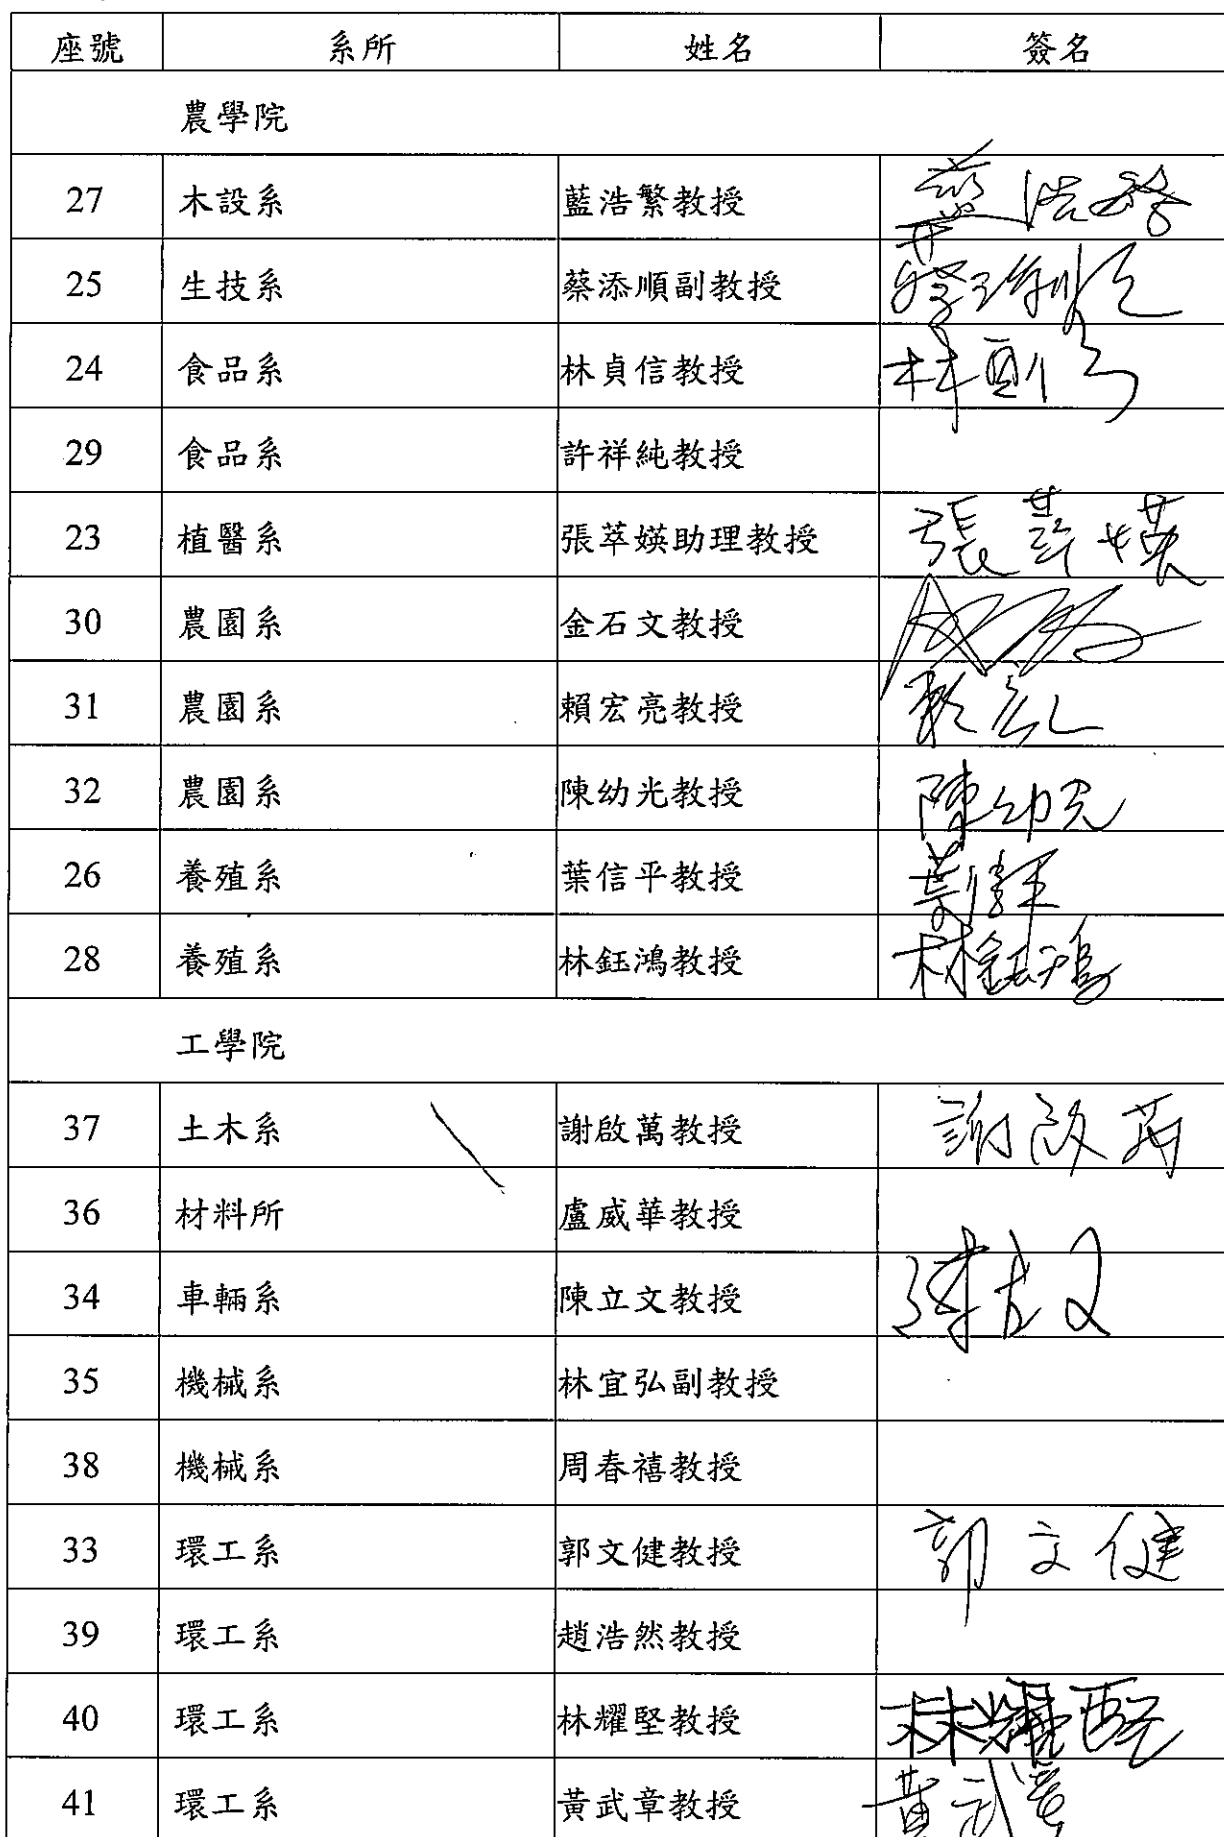 座號 系所 姓名 簽名
農學院
27 木設系 藍浩繁教授 藍浩繁
25 生技系 蔡添順副教授 蔡添順
24 食品系 林貞信教授
29 食品系 許祥純教授
23 植醫系 張萃媖助理教授 張萃媖
30 農園系 金石文教授
31 農園系 賴宏亮教授
32 農園系 陳幼光教授 陳幼光
26 養殖系 葉信平教授 葉信平
28 養殖系 林鈺鴻教授 林鈺鴻
工學院
37 土木系 謝啟萬教授 謝啟萬
36 材料所 盧威華教授
34 車輛系 陳立文教授 陳立文
35 機械系 林宜弘副教授
38 機械系 周春禧教授
33 環工系 郭文健教授 郭文健
39 環工系 趙浩然教授
40 環工系 林耀堅教授 林耀堅
41 環工系 黃武章教授 黃武章